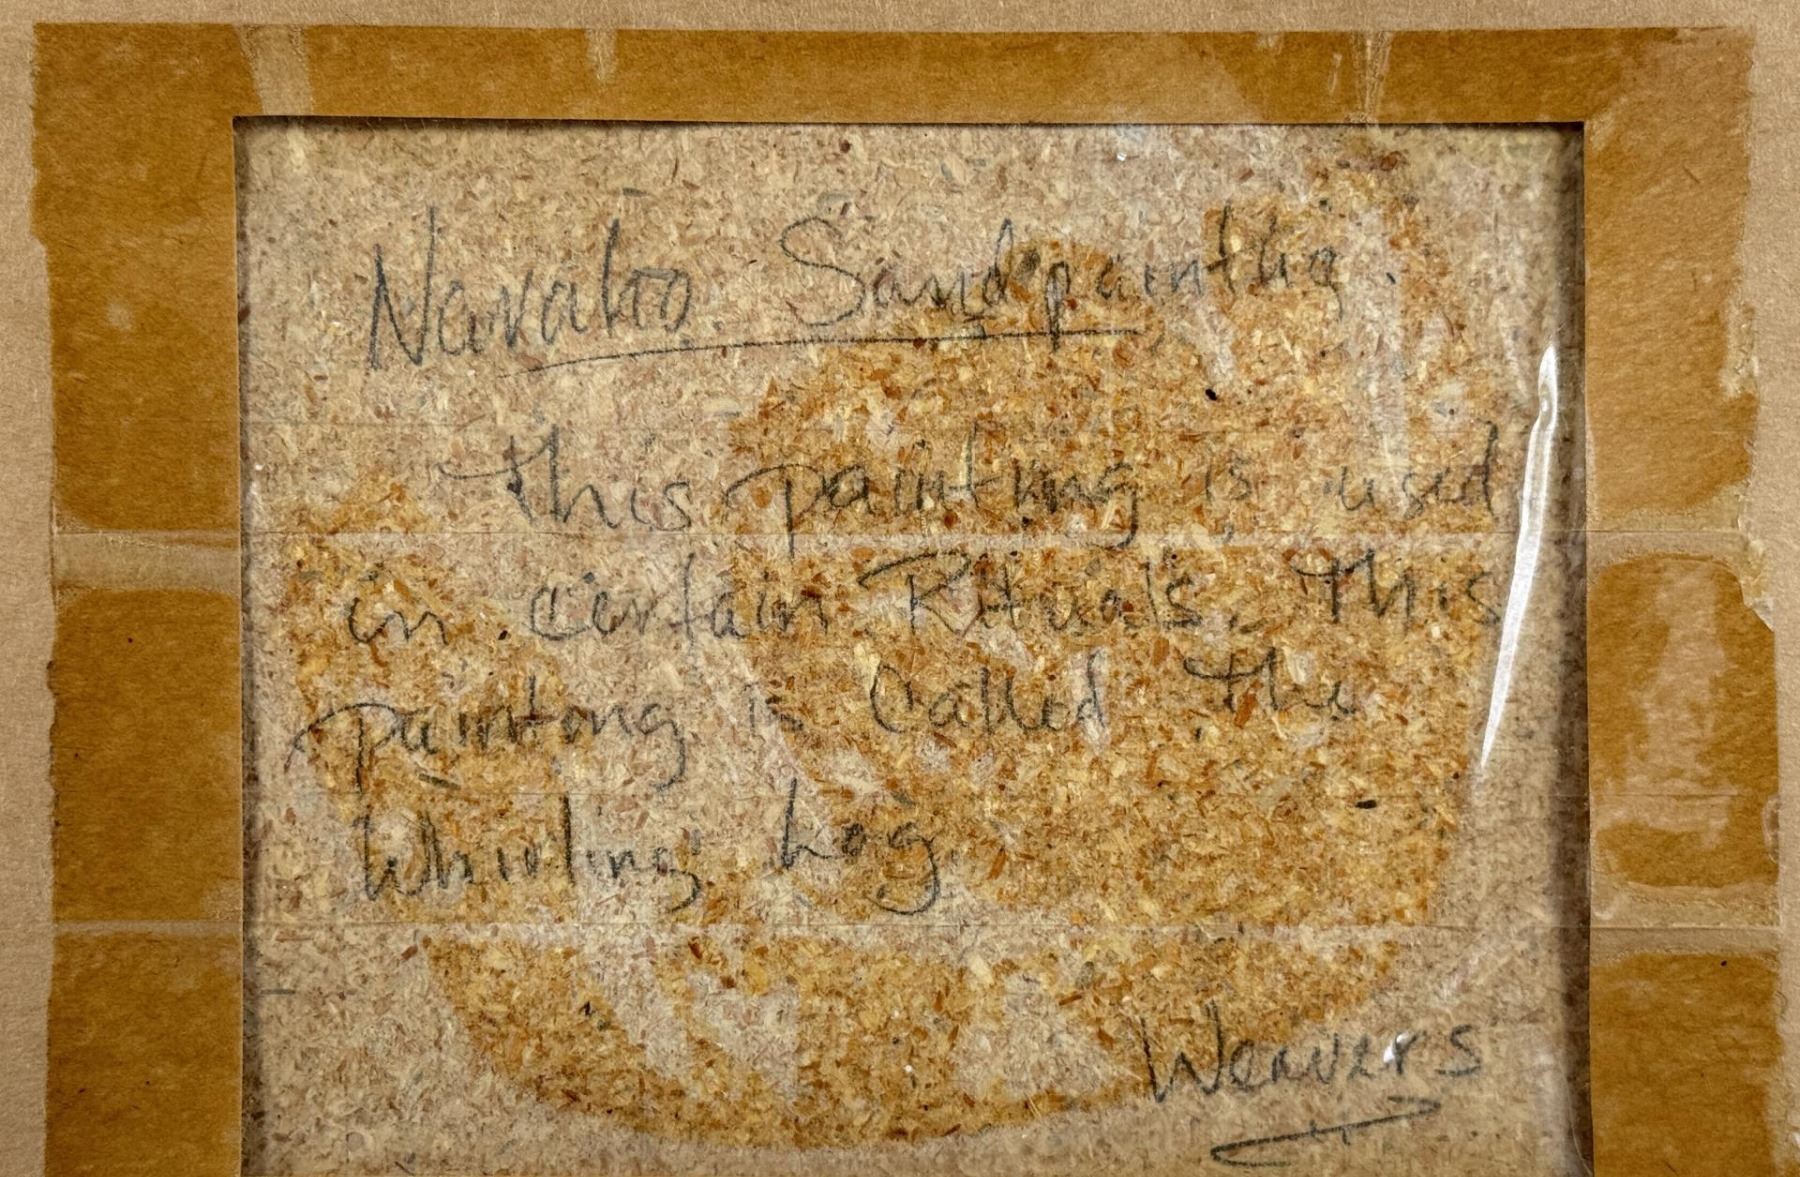 Navaho Sandpainting.
This painting is used
in certain Rituals. This
painting is Called The
Whirling Log
Weavers